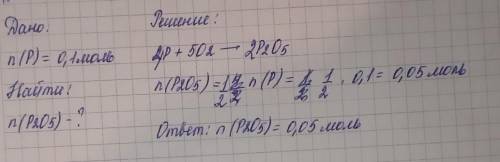 Дано:
n(P) = 0,1 моль
Найти:
n(P2O5) - ?
Решение:
4P + 5O2 → 2P2O5
n(P2O5) = 1/2 n(P) = 1/2 · 0,1 = 0,05 моль
Ответ: n(P2O5) = 0,05 моль